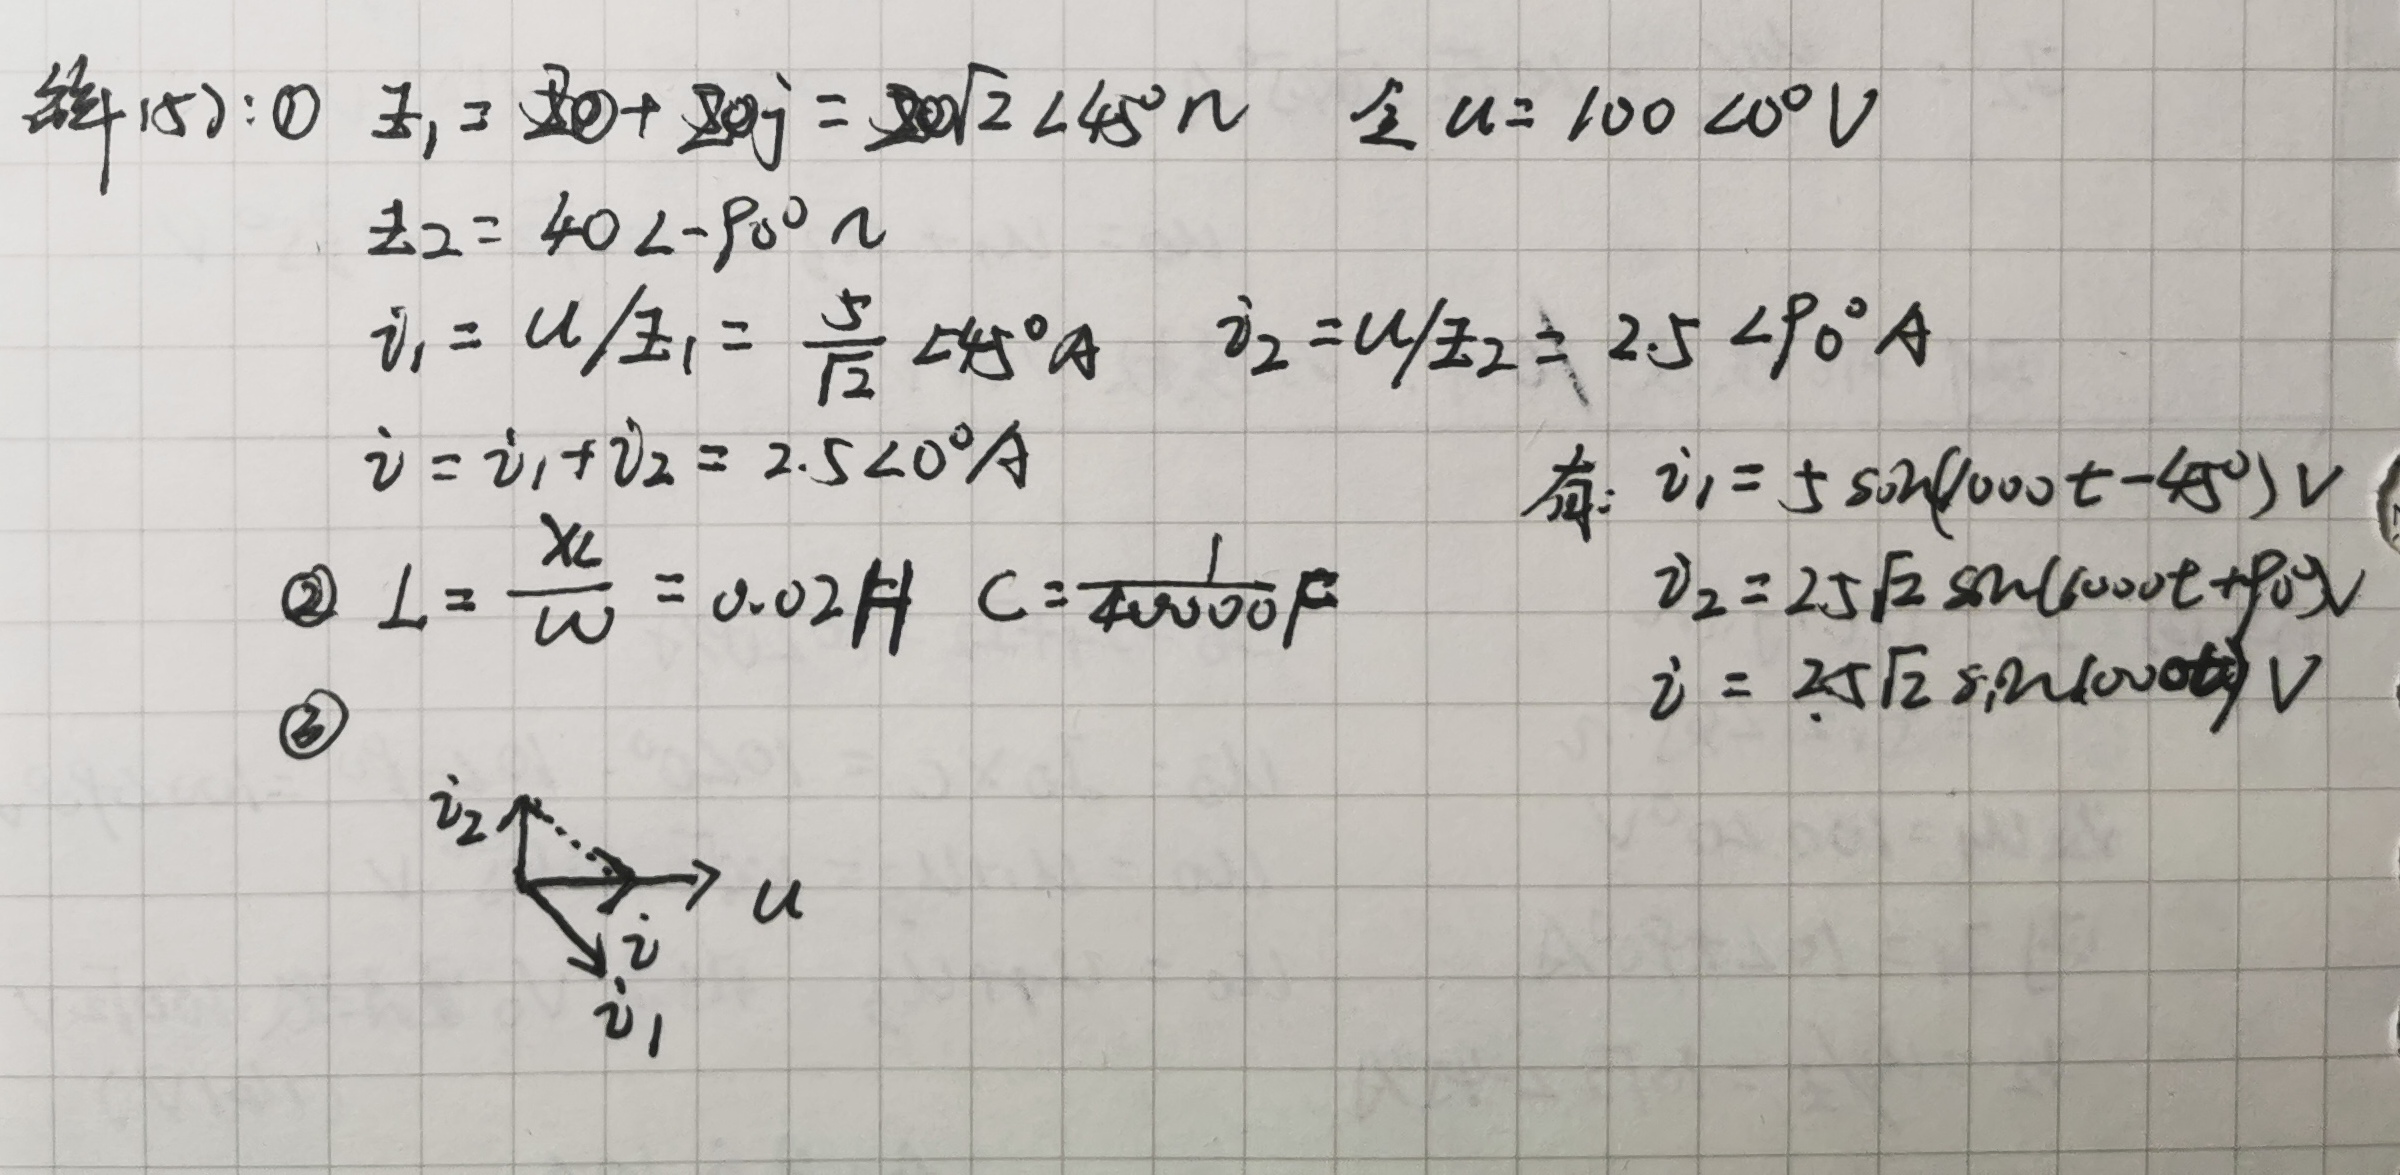 解(5): ① Z₁ = 20 + 20j = 20√2 ∠45° Ω 令 u = 100 ∠0° V
Z₂ = 40 ∠-90° Ω
i₁ = u/Z₁ = 5/√2 ∠45° A i₂ = u/Z₂ = 2.5 ∠90° A
i = i₁ + i₂ = 2.5 ∠0° A
有: i₁ = 5 sin(1000t - 45°) V
i₂ = 25√2 sin(1000t + 90°) V
i = 2.5√2 sin(1000t) V
② L = XL/ω = 0.02H C = 1/40000 F
③
i₂
u
i
i₁